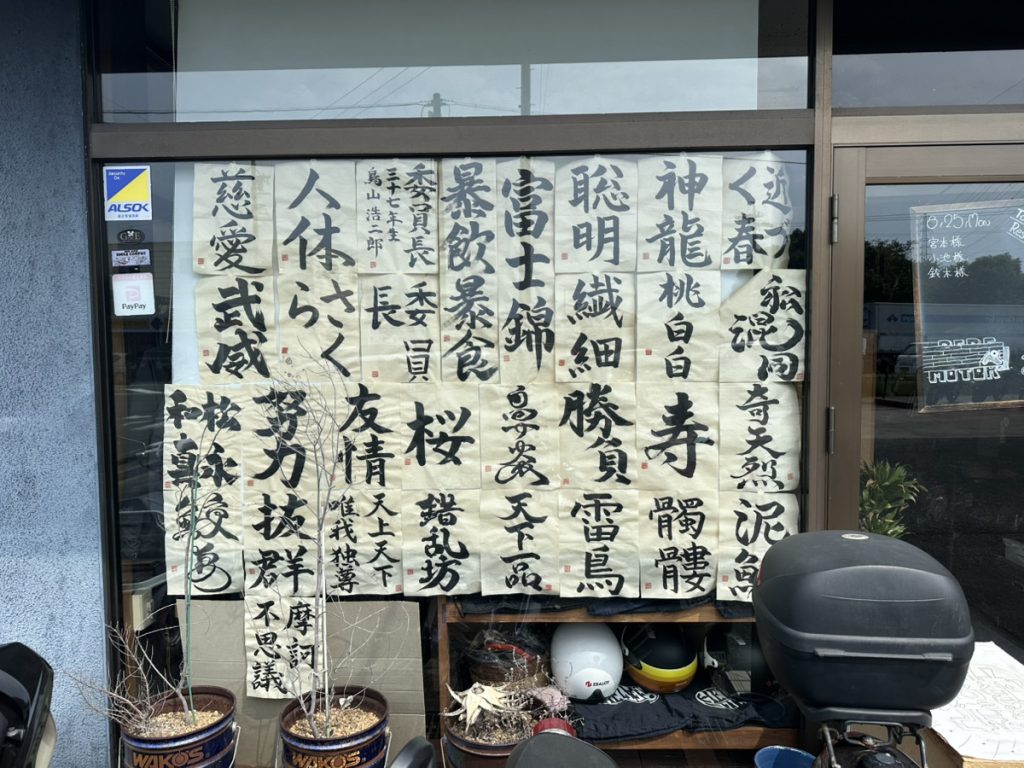 Security On
ALSOK
PayPay
近づく春
神龍
聡明
富士錦
暴飲暴食
委員長
三十七年生
鳥山浩二郎
人休
慈愛
混同
桃白白
繊細
委員長
さくら
武威
奇天烈
寿
勝負
桜
友情
努力
松永
和真
泥
髑髏
雷鳥
天下一品
錯乱坊
天上天下
唯我独尊
抜群
摩訶
不思議
8.25 Mon
宮本様
小池様
鈴木様
MOTOR
WAKO'S
WAKO'S